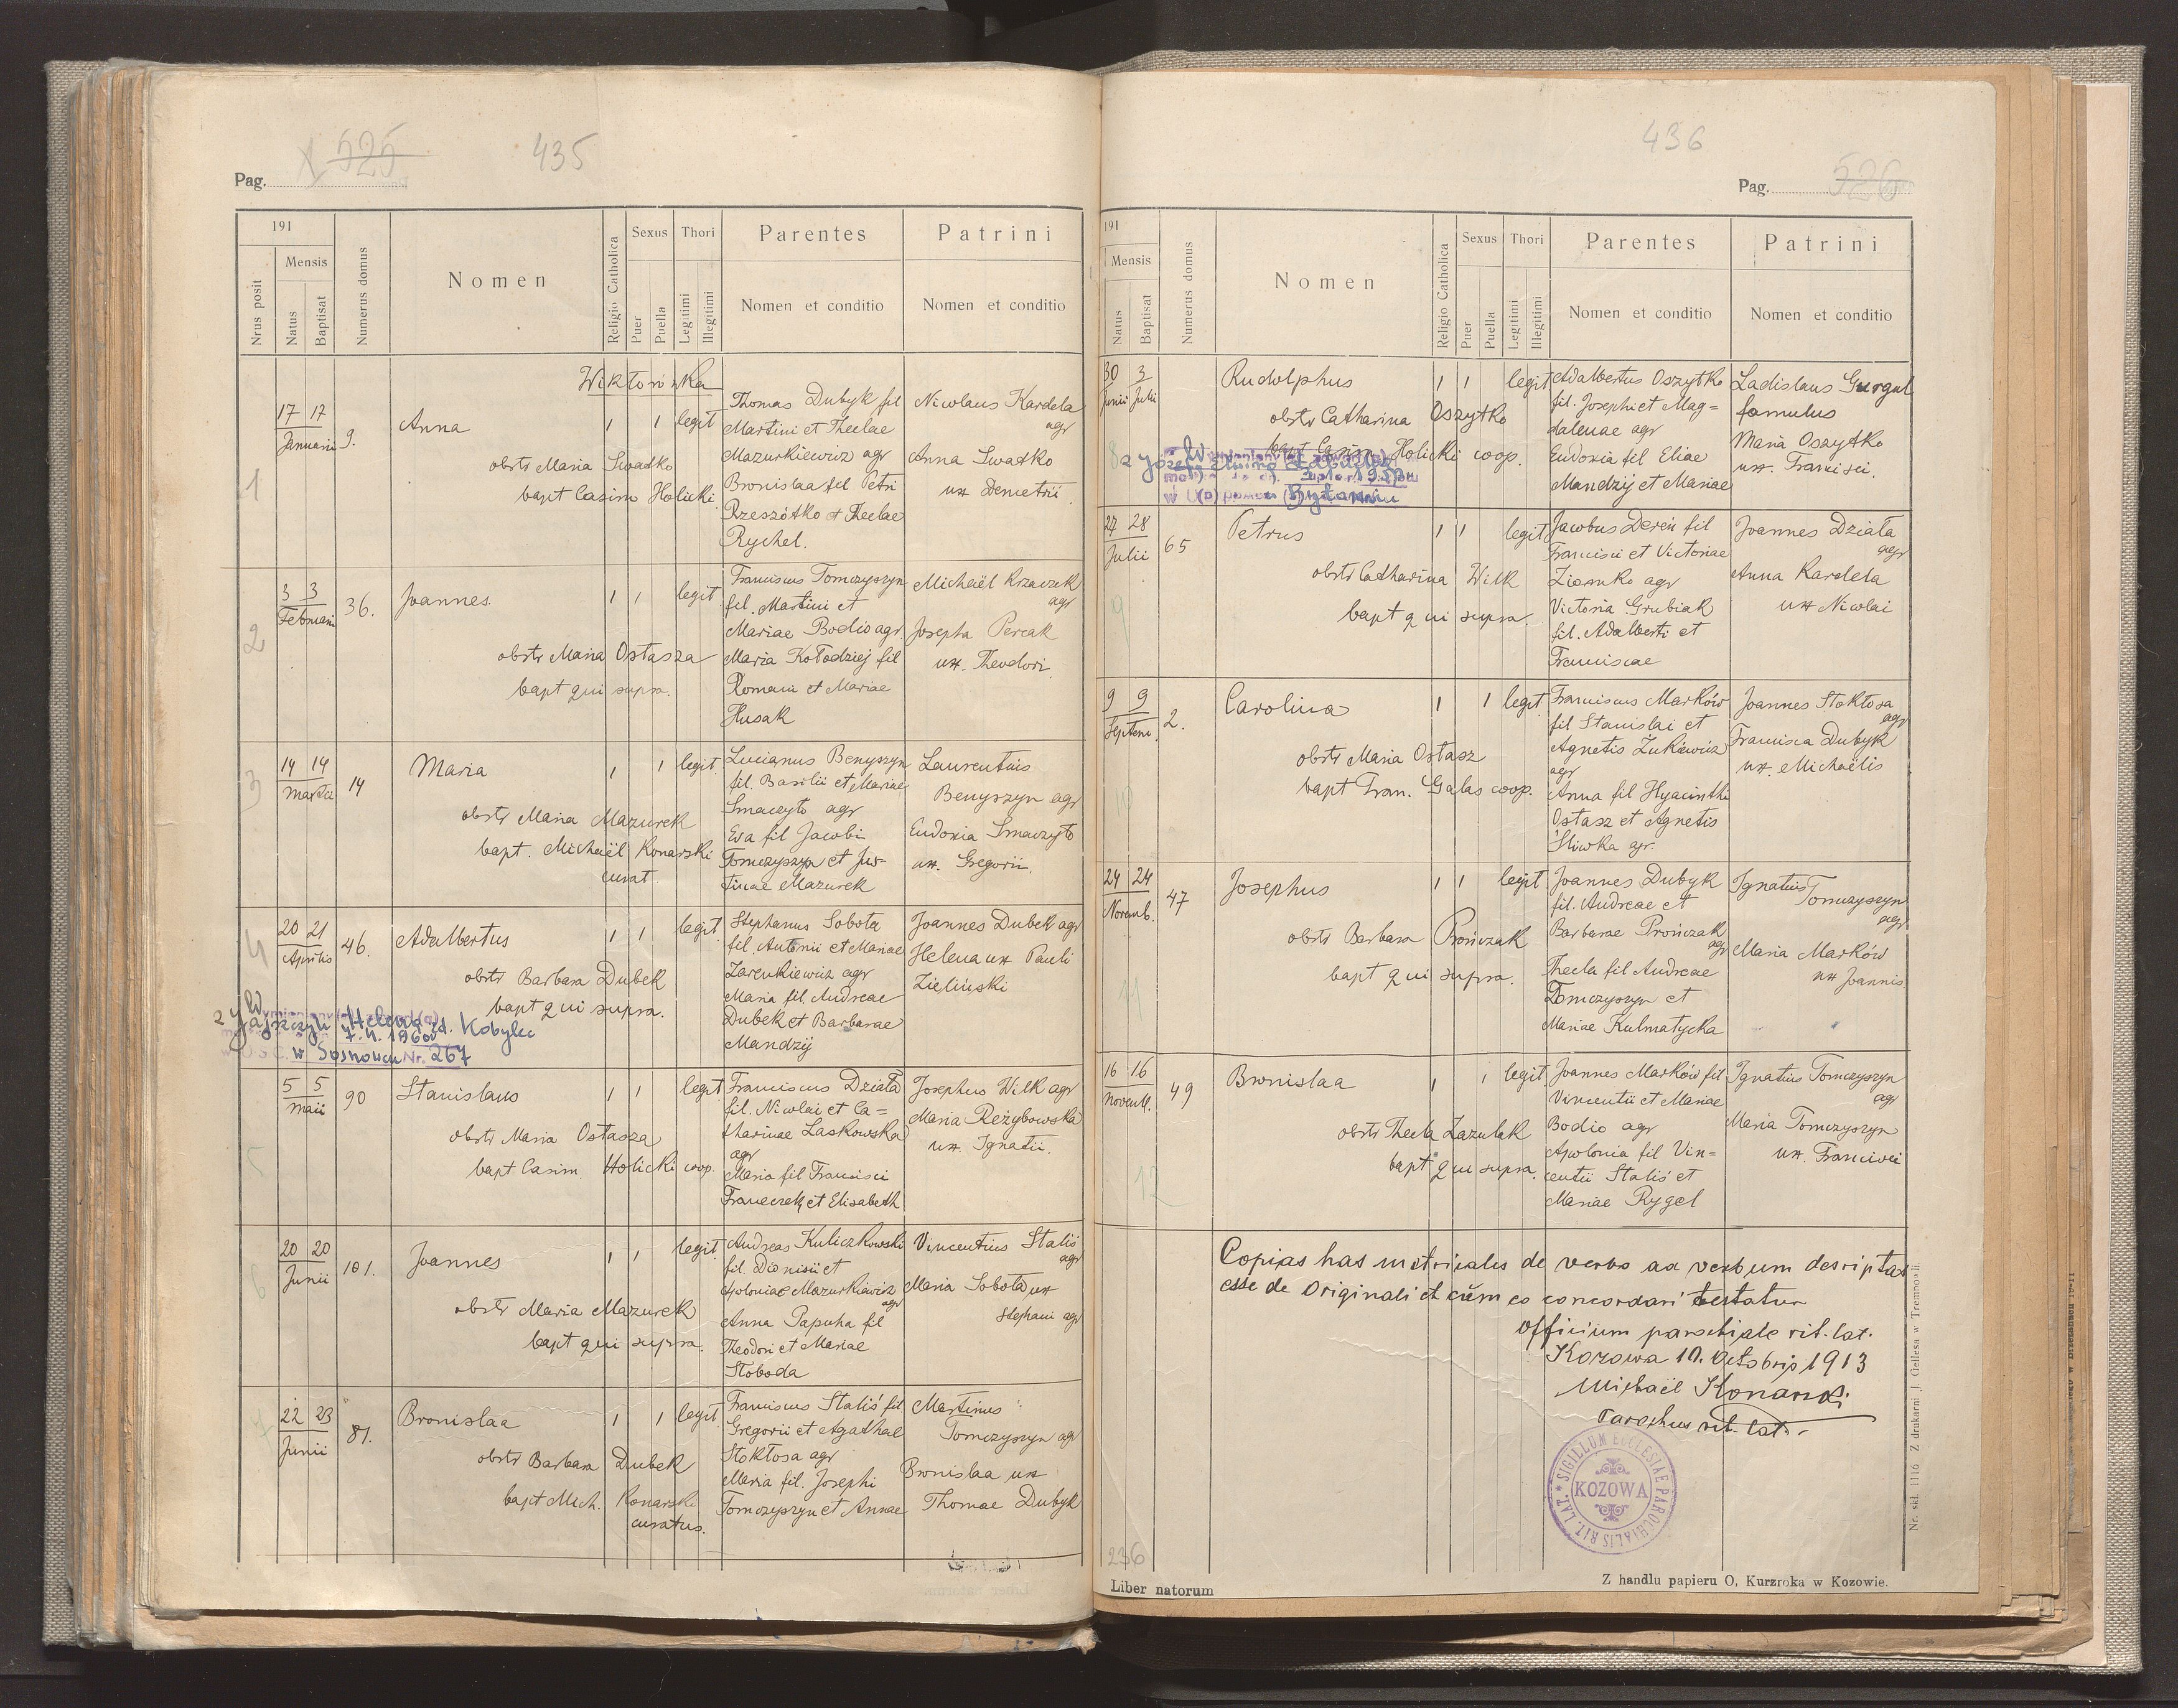 525
435
Pag.
191
Nrus posit
Mensis
Natus
Baptisat
Numerus domus
Nomen
Religio Catholica
Sexus
Puer
Puella
Thori
Legitimi
Illegitimi
Parentes
Nomen et conditio
Patrini
Nomen et conditio
Wiktorówka
1
17 17
Januarii
9.
Anna
1 1 legit
obstr Maria Swatko
bapt Casim Holicki
Thomas Dubyk fil
Martini et Theclae
Mazurkiewicz agr
Bronislaa fil Petri
Rzeszótko et Theclae
Rychel.
Nicolaus Kardela
agr
Anna Swatko
ux Demetrii.
2
3 3
Februarii
36.
Joannes.
1 1 legit
obstr Maria Ostasza
bapt qui supra.
Franciscus Tomczyszyn
fil. Martini et
Mariae Bodio agr
Maria Kołodziej fil
Romani et Mariae
Husak
Michaël Krzaczek
agr
Josepha Percak
ux. Theodori.
3
14 14
Martii
14
Maria
1 1 legit.
obstr Maria Mazurek
bapt. Michaël Konarski
curat.
Lucianus Benyszyn
fil. Basilii et Mariae
Smaczyło agr
Eva fil Jacobi
Tomczyszyn et Jus-
tinae Mazurek
Laurentius
Benyszyn agr
Eudoxia Smaczyło
ux. Gregorii.
4
20 21
Aprilis
46.
Adalbertus
1 1 legit
obstr Barbara Dubek
bapt qui supra.
Stephanus Sobota
fil. Antonii et Mariae
Zarenkiewicz agr
Maria fil. Andreae
Dubek et Barbarae
Mandzij
Joannes Dubek agr
Helena ux Pauli
Zieliński
Wymieniony
z Helena zd. Kobylec
7. 11. 1960
w U.S.C. w Sosnowcu Nr. 267
5
5 5
Maii
90
Stanislaus
1 1 legit
obstr Maria Ostasza
bapt Casim. Holicki coop.
Franciscus Działa
fil. Nicolai et Ca=
tharinae Laskowska
agr
Maria fil Francisci
Franeczek et Elisabeth
Josephus Wilk agr
Maria Reżybowska
ux. Ignatii.
6
20 20
Junii
101.
Joannes
1 1 legit
obstr Maria Mazurek
bapt qui supra.
Andreas Kuliczkowski
fil Dionisii et
Apoloniae Mazurkiewicz
agr
Anna Papuha fil
Theodori et Mariae
Słoboda
Vincentius Staliś
agr
Maria Sobota ux
Stephani agr
7
22 23
Junii
81.
Bronislaa
1 1 legit
obstr Barbara Dubek
bapt Mich. Konarski
curatus.
Franciscus Staliś fil
Gregorii et Agathae
Stokłosa agr
Maria fil. Josephi
Tomczyszyn et Annae
Martinus
Tomczyszyn agr
Bronislaa ux
Thomae Dubyk
436
Pag. 526
191
Mensis
Natus
Baptisat
Numerus domus
Nomen
Religio Catholica
Sexus
Puer
Puella
Thori
Legitimi
Illegitimi
Parentes
Nomen et conditio
Patrini
Nomen et conditio
8
30 3
Junii Julii
Rudolphus
1 1 legit
obstr Catharina Oszytko
bapt Casim. Holicki coop.
Adalbertus Oszytko
fil. Josephi et Mag=
dalenae agr
Eudoxia fil Eliae
Mandzij et Mariae
Ladislaus Gurgul
famulus
Maria Oszytko
ux. Francisci.
w Bytomiu
9
27 28
Julii
65
Petrus
1 1 legit
obstr Catharina Wilk
bapt qui supra.
Jacobus Dereń fil
Francisci et Victoriae
Ziomko agr
Victoria Grubiak
fil. Adalberti et
Franciscae
Joannes Działa
agr
Anna Kardela
ux Nicolai
10
9 9
Septem.
2.
Carolina
1 1 legit
obstr Maria Ostasz
bapt Fran. Galas coop.
Franciscus Marków
fil Stanislai et
Agnetis Żukiewicz
agr
Anna fil Hyacinthi
Ostasz et Agnetis
Śliwka agr.
Joannes Stokłosa
agr
Francisca Dubyk
ux. Michaëlis
11
24 24
Novemb.
47
Josephus
1 1 legit
obstr Barbara Prończak
bapt qui supra.
Joannes Dubyk
fil. Andreae et
Barbarae Prończak
agr
Thecla fil Andreae
Tomczyszyn et
Mariae Kulmatycka
Ignatius
Tomczyszyn
agr
Maria Marków
ux Joannis
12
16 16
Novemb.
49
Bronislaa
1 1 legit
obstr Thecla Zazulak
bapt qui supra.
Joannes Marków fil
Vincentii et Mariae
Bodio agr
Apolonia fil Vin=
centii Staliś et
Mariae Rygel
Ignatius Tomczyszyn
agr
Maria Tomczyszyn
ux. Francisci
Copias has metricales de verbo ad verbum descriptas
esse de Originali et cum eo concordari testatur
Officium parochiale rit. lat.
Kozowa 10. Octobris 1913
Michaël Konarski
Parochus rit. lat.
SIGILLUM ECCLESIAE PAROCHIALIS RIT. LAT.
KOZOWA
236
Liber natorum
Z handlu papieru O, Kurzroka w Kozowie.
Nr. skł. 1116 Z drukarni J. Gellesa w Trembowli.